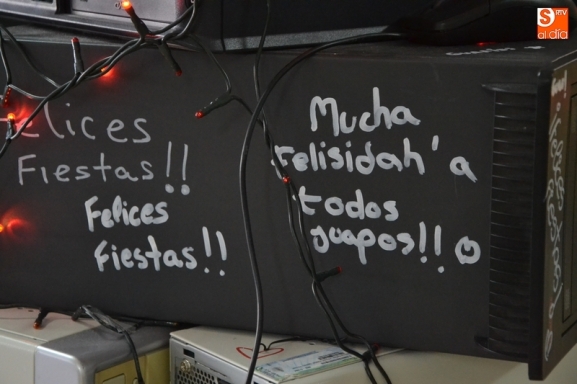 elices
Fiestas!!
Felices
Fiestas!!
Mucha
Felisidah'a
todos
guapos!!
SRTV
al día